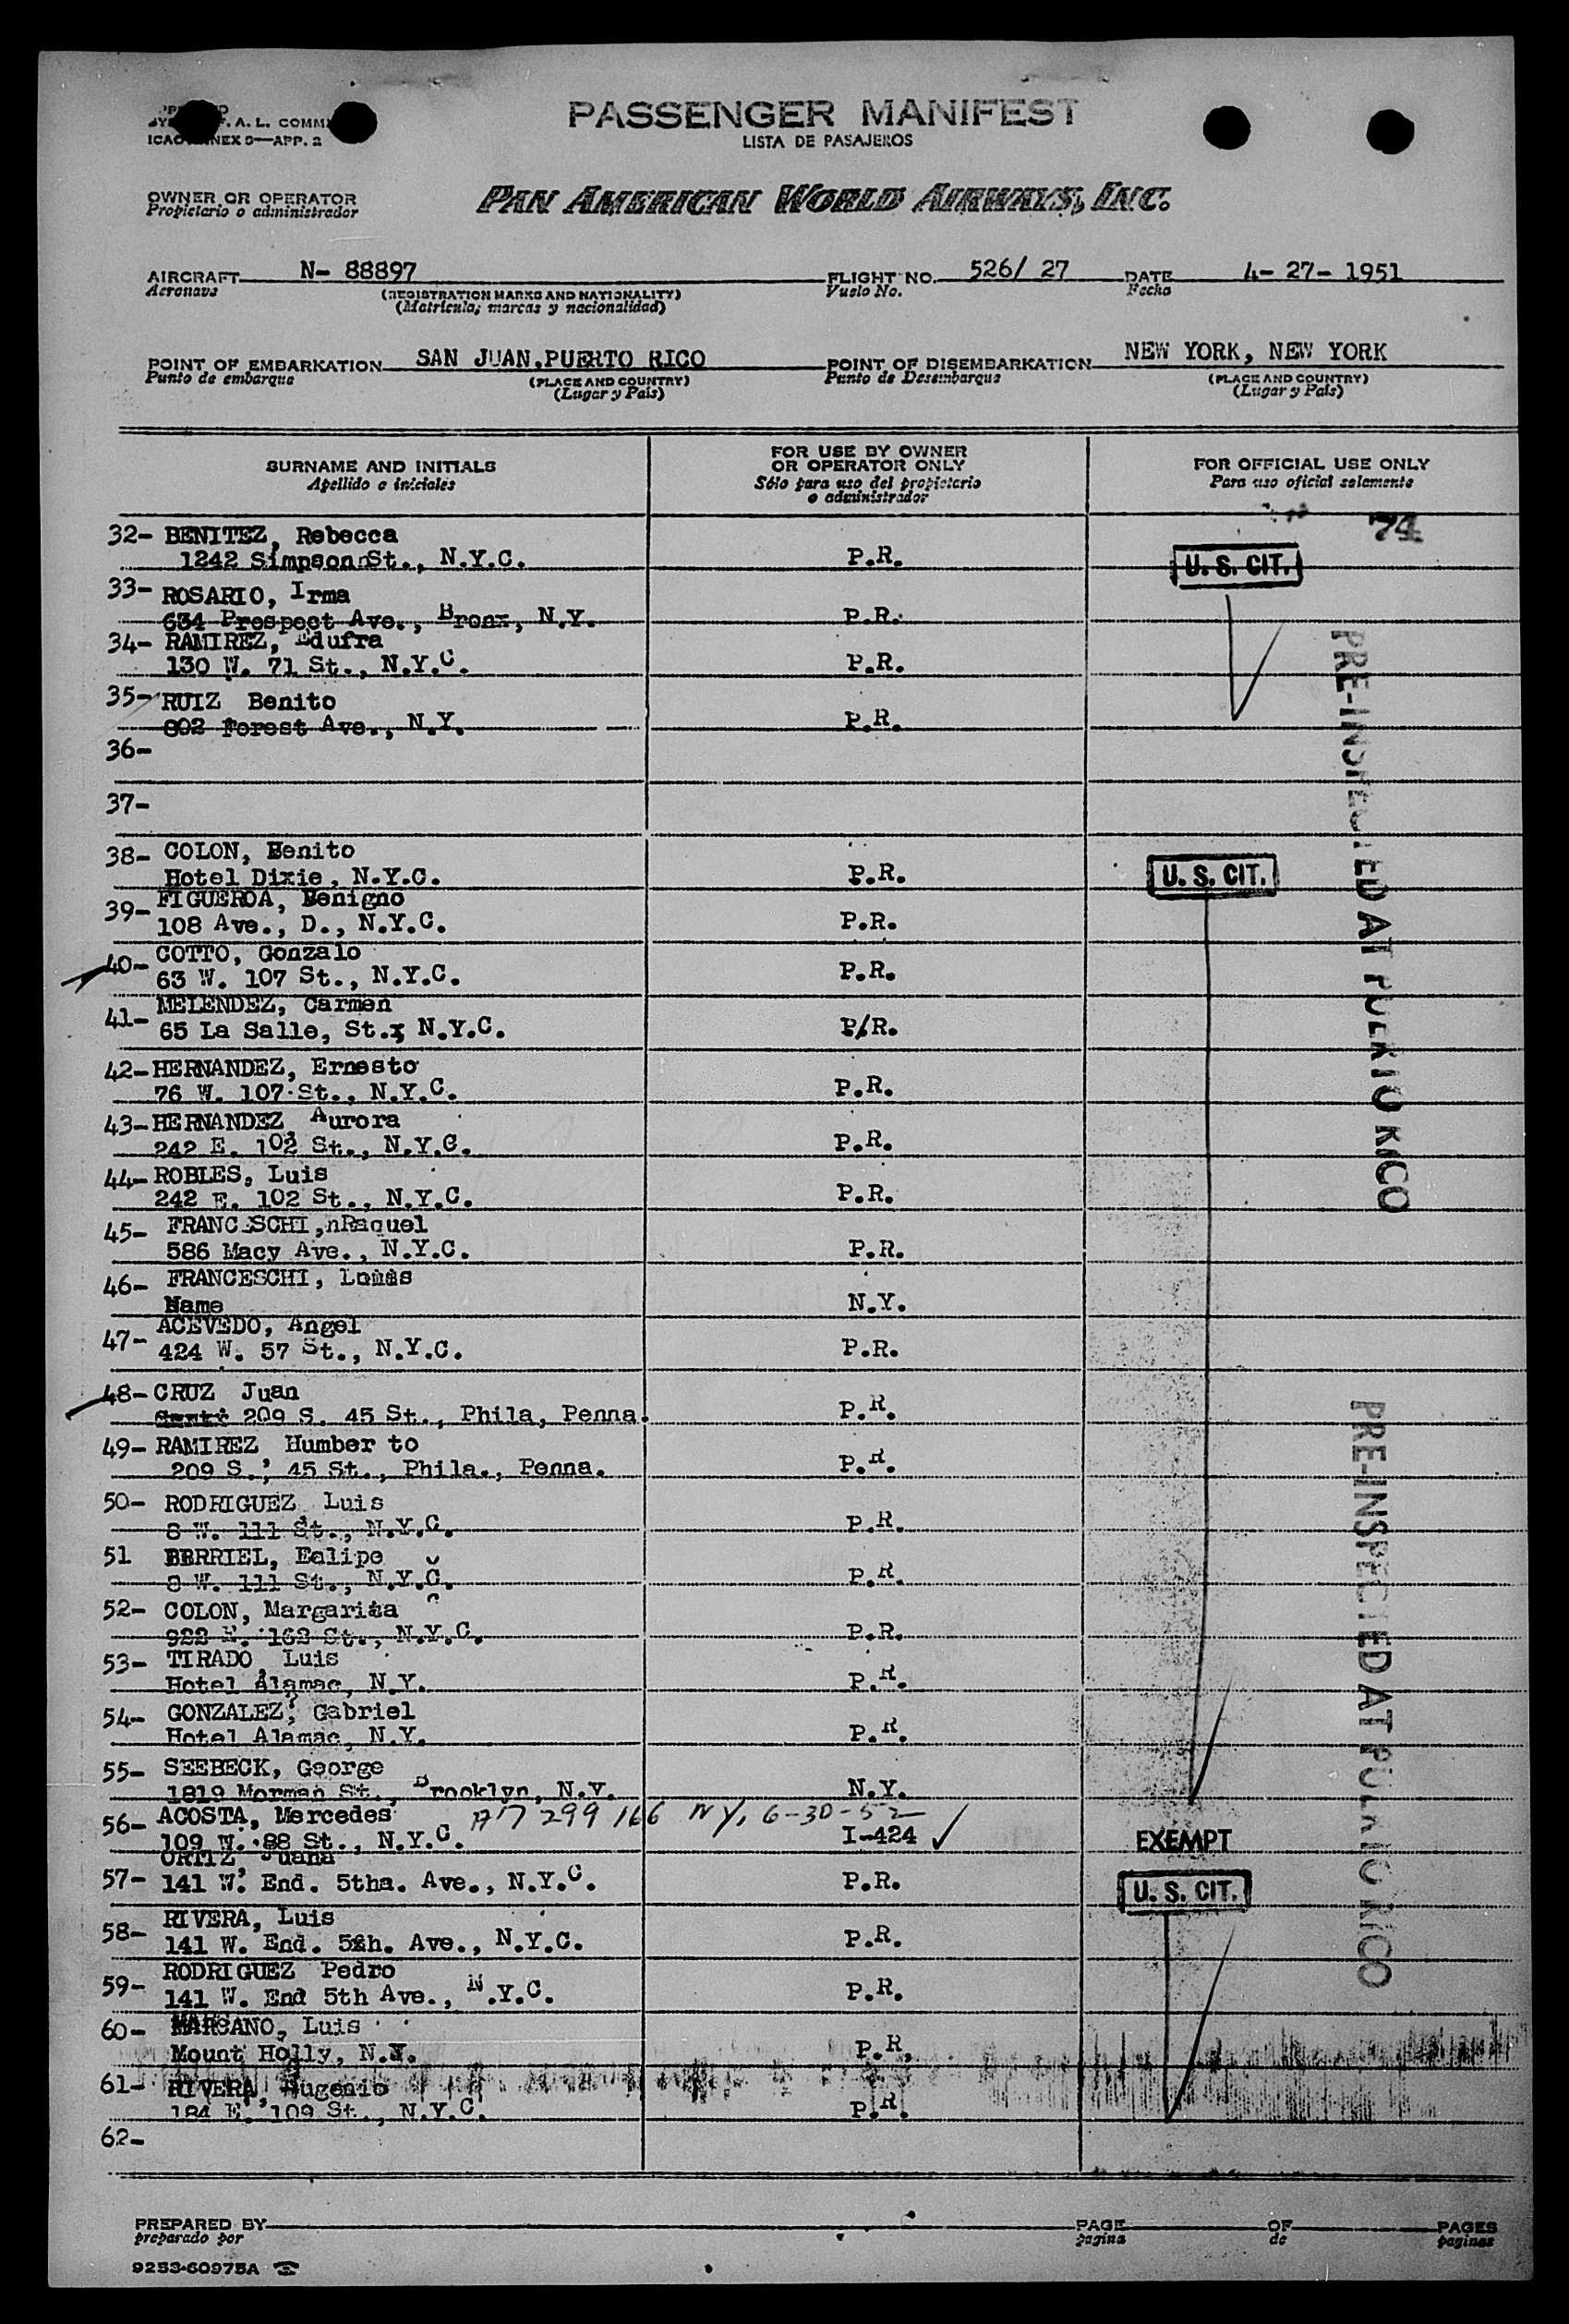 F. A. L. COMM
ICAO ANNEX 9—APP. 2
PASSENGER MANIFEST
LISTA DE PASAJEROS
OWNER OR OPERATOR
Propietario o administrador
PAN AMERICAN WORLD AIRWAYS, INC.
AIRCRAFT N- 88897 FLIGHT NO. 526/ 27 DATE 4- 27- 1951
Aeronave (REGISTRATION MARKS AND NATIONALITY) Vuelo No. Fecha
(Matricula; marcas y nacionalidad)
POINT OF EMBARKATION SAN JUAN,PUERTO RICO POINT OF DISEMBARKATION NEW YORK, NEW YORK
Punto de embarque (PLACE AND COUNTRY) Punto de Desembarque (PLACE AND COUNTRY)
(Lugar y País) (Lugar y País)
SURNAME AND INITIALS
Apellido e iniciales
FOR USE BY OWNER
OR OPERATOR ONLY
Sólo para uso del propietario
o administrador
FOR OFFICIAL USE ONLY
Para uso oficial solamente
74
32- BENITEZ, Rebecca
1242 Simpson St., N.Y.C. P.R. U. S. CIT.
33- ROSARIO, Irma
634 Prospect Ave., Bronx, N.Y. P.R.
34- RAMIREZ, Edufra
130 W. 71 St., N.Y.C. P.R.
35- RUIZ Benito
802 Forest Ave., N.Y. P.R.
36-
37-
38- COLON, Benito
Hotel Dixie, N.Y.C. P.R. U. S. CIT.
39- FIGUEROA, Benigno
108 Ave., D., N.Y.C. P.R.
40- COTTO, Gonzalo
63 W. 107 St., N.Y.C. P.R.
41- MELENDEZ, Carmen
65 La Salle, St., N.Y.C. P/R.
42- HERNANDEZ, Ernesto
76 W. 107 St., N.Y.C. P.R.
43- HERNANDEZ, Aurora
242 E. 102 St., N.Y.C. P.R.
44- ROBLES, Luis
242 E. 102 St., N.Y.C. P.R.
45- FRANCESCHI,nRaquel
586 Macy Ave., N.Y.C. P.R.
46- FRANCESCHI,
Name N.Y.
47- ACEVEDO, Angel
424 W. 57 St., N.Y.C. P.R.
48- CRUZ Juan
209 S. 45 St., Phila, Penna. P.R.
49- RAMIREZ Humber to
209 S., 45 St., Phila., Penna. P.R.
50- RODRIGUEZ Luis
8 W. 111 St., N.Y.C. P.R.
51 BERRIEL, Ealipe
8 W. 111 St., N.Y.C. P.R.
52- COLON, Margarita
922 E. 162 St., N.Y.C. P.R.
53- TIRADO, Luis
Hotel Alamac, N.Y. P.R.
54- GONZALEZ, Gabriel
Hotel Alamac, N.Y. P.R.
55- SEEBECK, George
1819 Morman St., Brooklyn, N.Y. N.Y.
56- ACOSTA, Mercedes A7 299 166 NY, 6-30-52
109 W. 88 St., N.Y.C. I-424 ✓ EXEMPT
57- ORTIZ, Juana
141 W. End. 5tha. Ave., N.Y.C. P.R. U. S. CIT.
58- RIVERA, Luis
141 W. End. 5th. Ave., N.Y.C. P.R.
59- RODRIGUEZ Pedro
141 W. End 5th Ave., N.Y.C. P.R.
60- MARCANO, Luis
Mount Holly, P.R.
61- RIVERA, Eugenio
184 E. 109 St., N.Y.C. P.R.
62-
PRE-INSPECTED AT PUERTO RICO
PRE-INSPECTED AT PUERTO RICO
PREPARED BY PAGE OF PAGES
preparado por pagina de paginas
9253-60975A